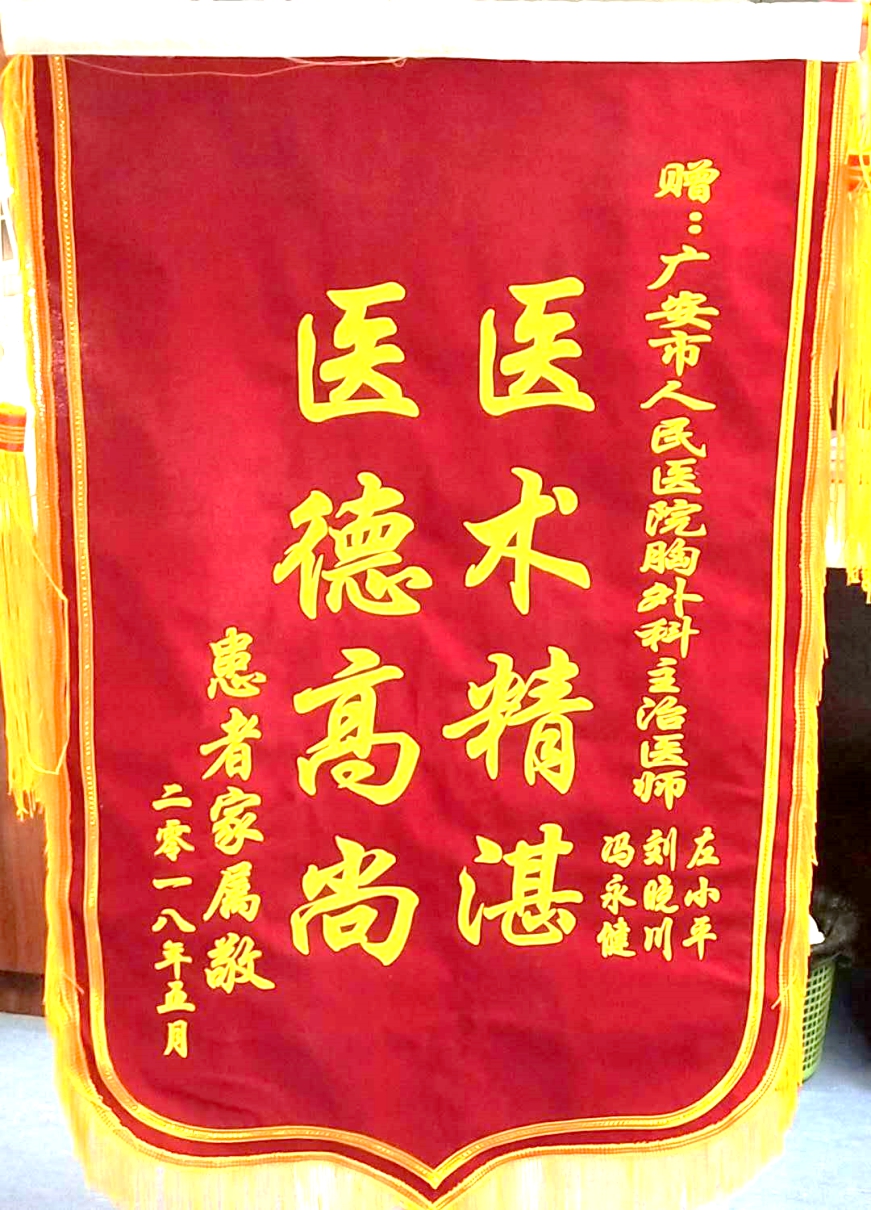 赠：广安市人民医院胸外科主治医师
左小平
刘晓川
冯永健
医术精湛
医德高尚
患者家属敬
二零一八年五月